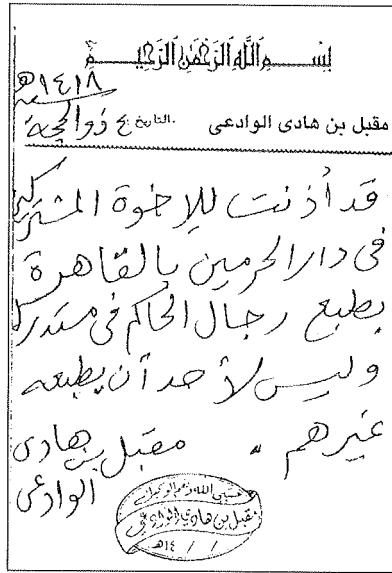 بسم الله الرحمن الرحيم
مقبل بن هادى الوادعى
التاريخ ٤ ذو الحجة سنة ١٤١٨هـ
قد أذنت للإخوة المشتركين
فى دار الحرمين بالقاهرة
بطبع رجال الحاكم فى مستدركه
وليس لأحد أن يطبعه
غيرهم .
مقبل بن هادى
الوادعى
حسبي الله ونعم الوكيل
مقبل بن هادي الوادعي
/ / ١٤هـ